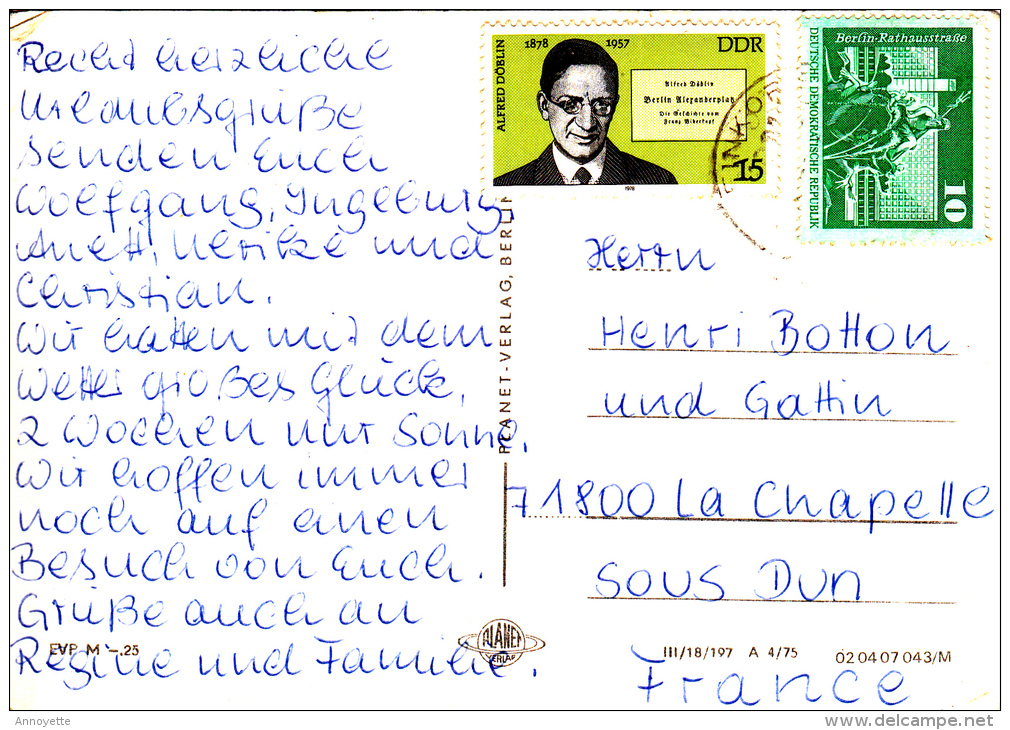 Recht herzliche
Urlaubsgrüße
senden Euch
Wolfgang, Ingeburg,
Anett, Ulrike und
Christian.
Wir hatten mit dem
Wetter großes Glück,
2 Wochen nur Sonne.
Wir hoffen immer
noch auf einen
Besuch von Euch.
Grüße auch an
Regine und Familie.
EVP M -.25
PLANET-VERLAG, BERLIN
PLANET
VERLAG
ALFRED DÖBLIN
1878 1957 DDR
Alfred Döblin
Berlin Alexanderplatz
Die Geschichte vom
Franz Biberkopf
15
1978
Berlin-Rathausstraße
DEUTSCHE DEMOKRATISCHE REPUBLIK
10
Herrn
Henri Botton
und Gattin
71800 La Chapelle
sous Dun
France
III/18/197 A 4/75 02 04 07 043/M
Annoyette
delcampe.net